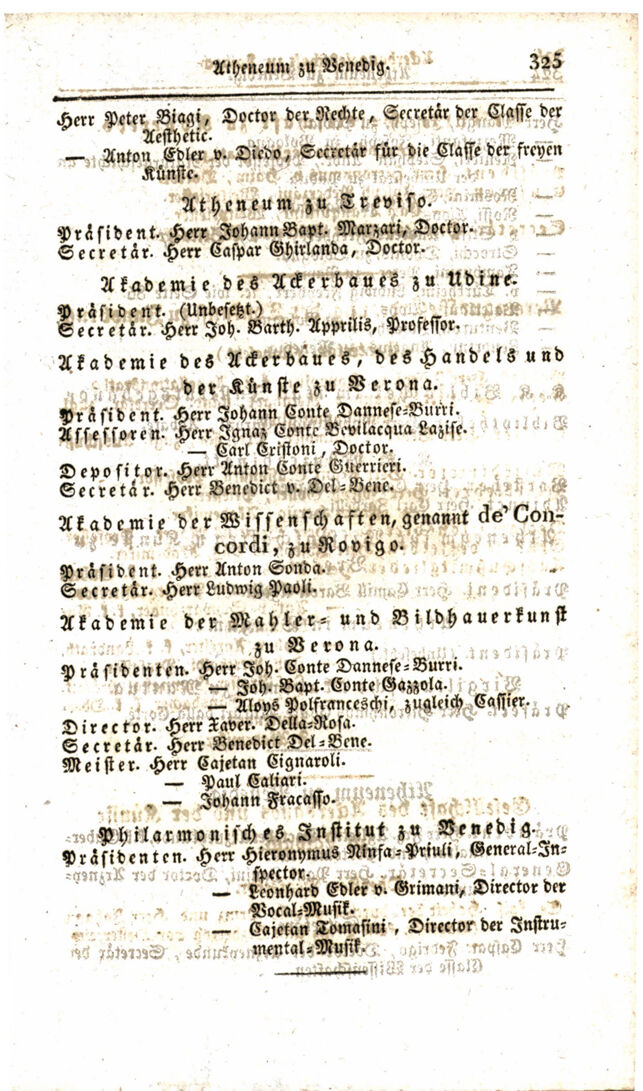 Atheneum zu Venedig. 325
Herr Peter Biagi, Doctor der Rechte, Secretär der Classe der
Aesthetic.
— Anton Edler v. Diedo, Secretär für die Classe der freyen
Künste.
Atheneum zu Treviso.
Präsident. Herr Johann Bapt. Marzari, Doctor.
Secretär. Herr Caspar Ghirlanda, Doctor.
Akademie des Ackerbaues zu Udine.
Präsident. (Unbesetzt.)
Secretär. Herr Joh. Barth. Apprilis, Professor.
Akademie des Ackerbaues, des Handels und
der Künste zu Verona.
Präsident. Herr Johann Conte Dannese-Burri.
Assessoren. Herr Ignaz Conte Bevilacqua Lazise.
— Carl Cristoni, Doctor.
Depositor. Herr Anton Conte Guerrieri.
Secretär. Herr Benedict v. Del-Bene.
Akademie der Wissenschaften, genannt de' Con-
cordi, zu Rovigo.
Präsident. Herr Anton Sonda.
Secretär. Herr Ludwig Paoli.
Akademie der Mahler- und Bildhauerkunst
zu Verona.
Präsidenten. Herr Joh. Conte Dannese-Burri.
— Joh. Bapt. Conte Gazzola.
— Aloys Polfranceschi, zugleich Cassier.
Director. Herr Xaver. Della-Rosa.
Secretär. Herr Benedict Del-Bene.
Meister. Herr Cajetan Cignaroli.
— Paul Caliari.
— Johann Fracasso.
Philarmonisches Institut zu Venedig.
Präsidenten. Herr Hieronymus Ninfa-Priuli, General-In-
spector.
— Leonhard Edler v. Grimani, Director der
Vocal-Musik.
— Cajetan Tomasini, Director der Instru-
mental-Musik.